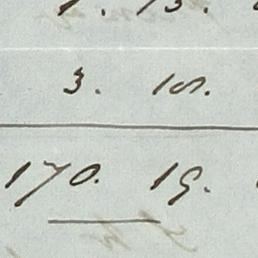 1. 13.
3. 10.
170. 19.